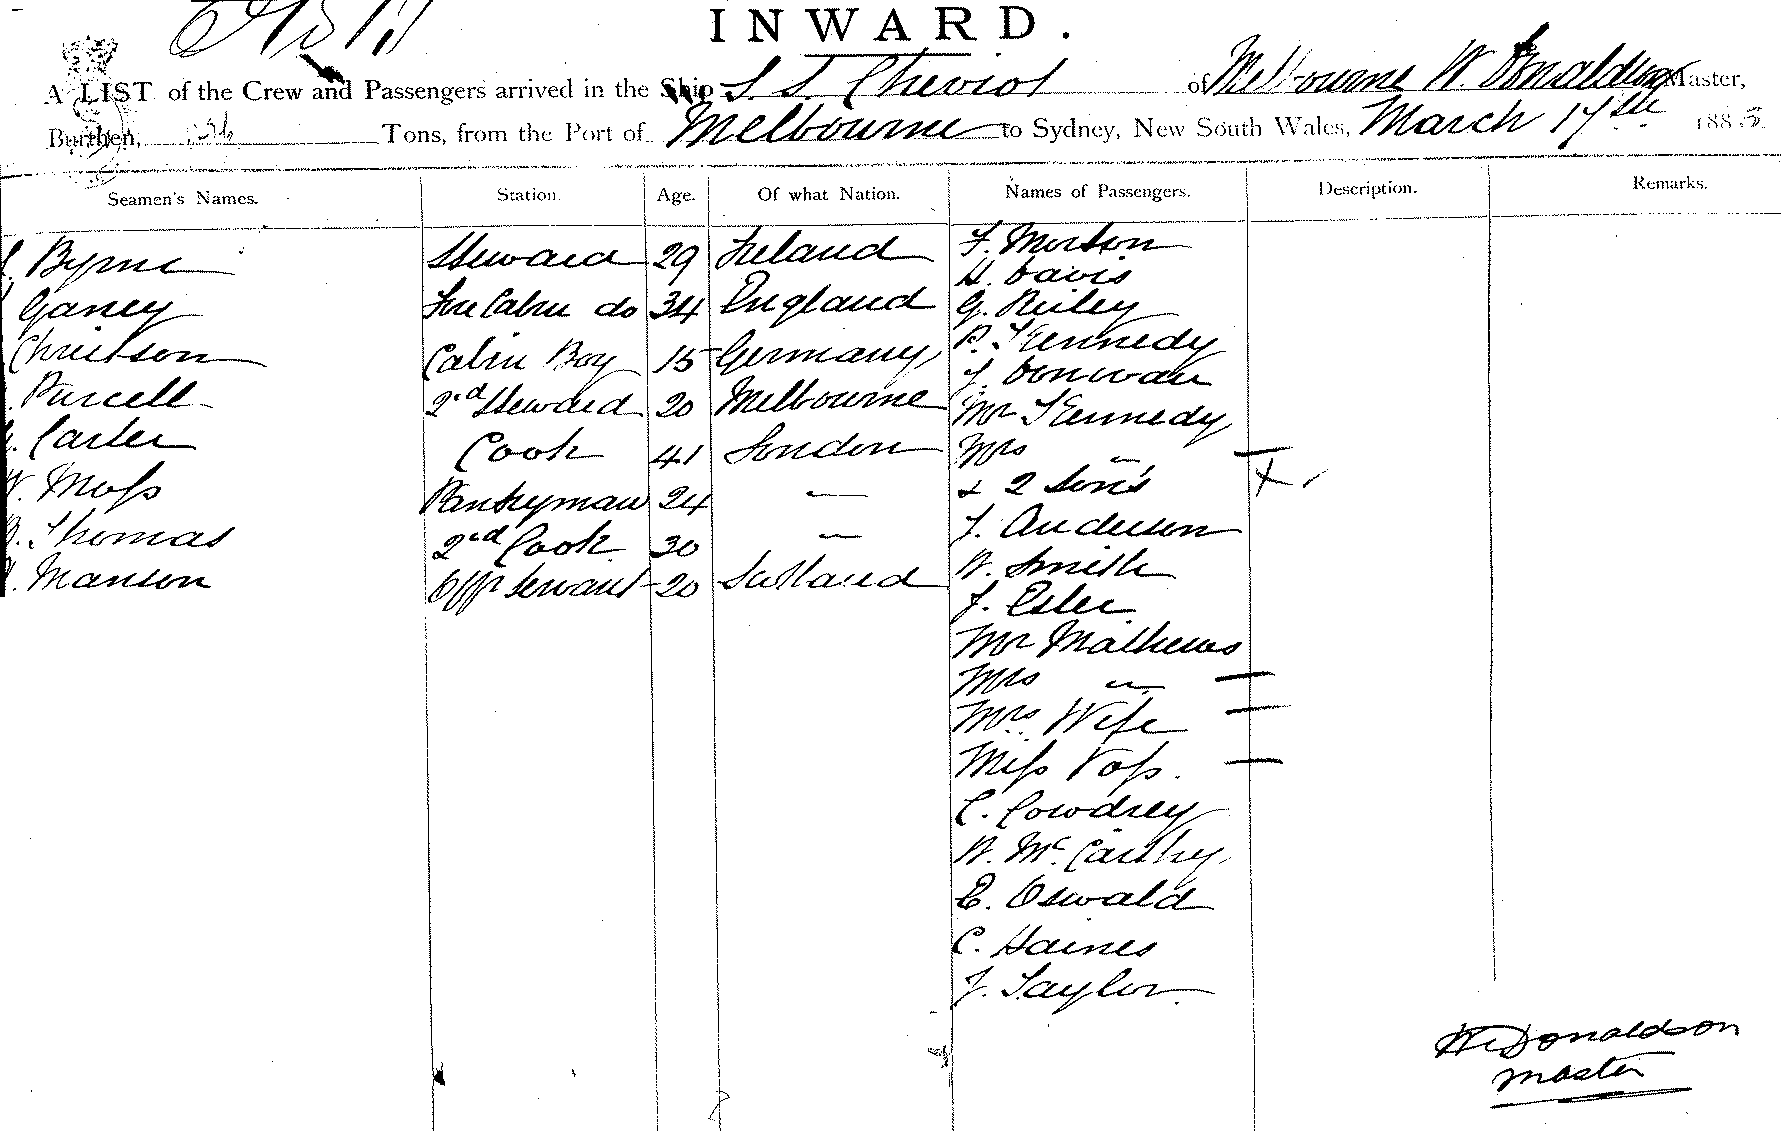 INWARD.
A LIST of the Crew and Passengers arrived in the Ship S. S. Cheviot of Melbourne W. Donaldson Master,
Burthen, Tons, from the Port of Melbourne to Sydney, New South Wales, March 17th 1885
Seamen's Names. Station. Age. Of what Nation. Names of Passengers. Description. Remarks.
Byrne Steward 29 Ireland F. Morton
H. Davis
Ganey Fore Cabin do 34 England G. Reiley
Christson Cabin Boy 15 Germany P. Kennedy
J. Donivan
Purcell 2nd Steward 20 Melbourne Mr Kennedy
Carter Cook 41 London Mrs "
W. Moss Pantryman 24 " & 2 Sons
B. Thomas 2nd Cook 30 " J. Anderson
Manson Off Servant 20 Scotland W. Smith
J. Esler
Mr Mathews
Mrs "
Mrs Wife
Miss Voss.
C. Cowdrey
W. McCarthy
E. Oswald
C. Haines
J. Taylor
W Donaldson
Master